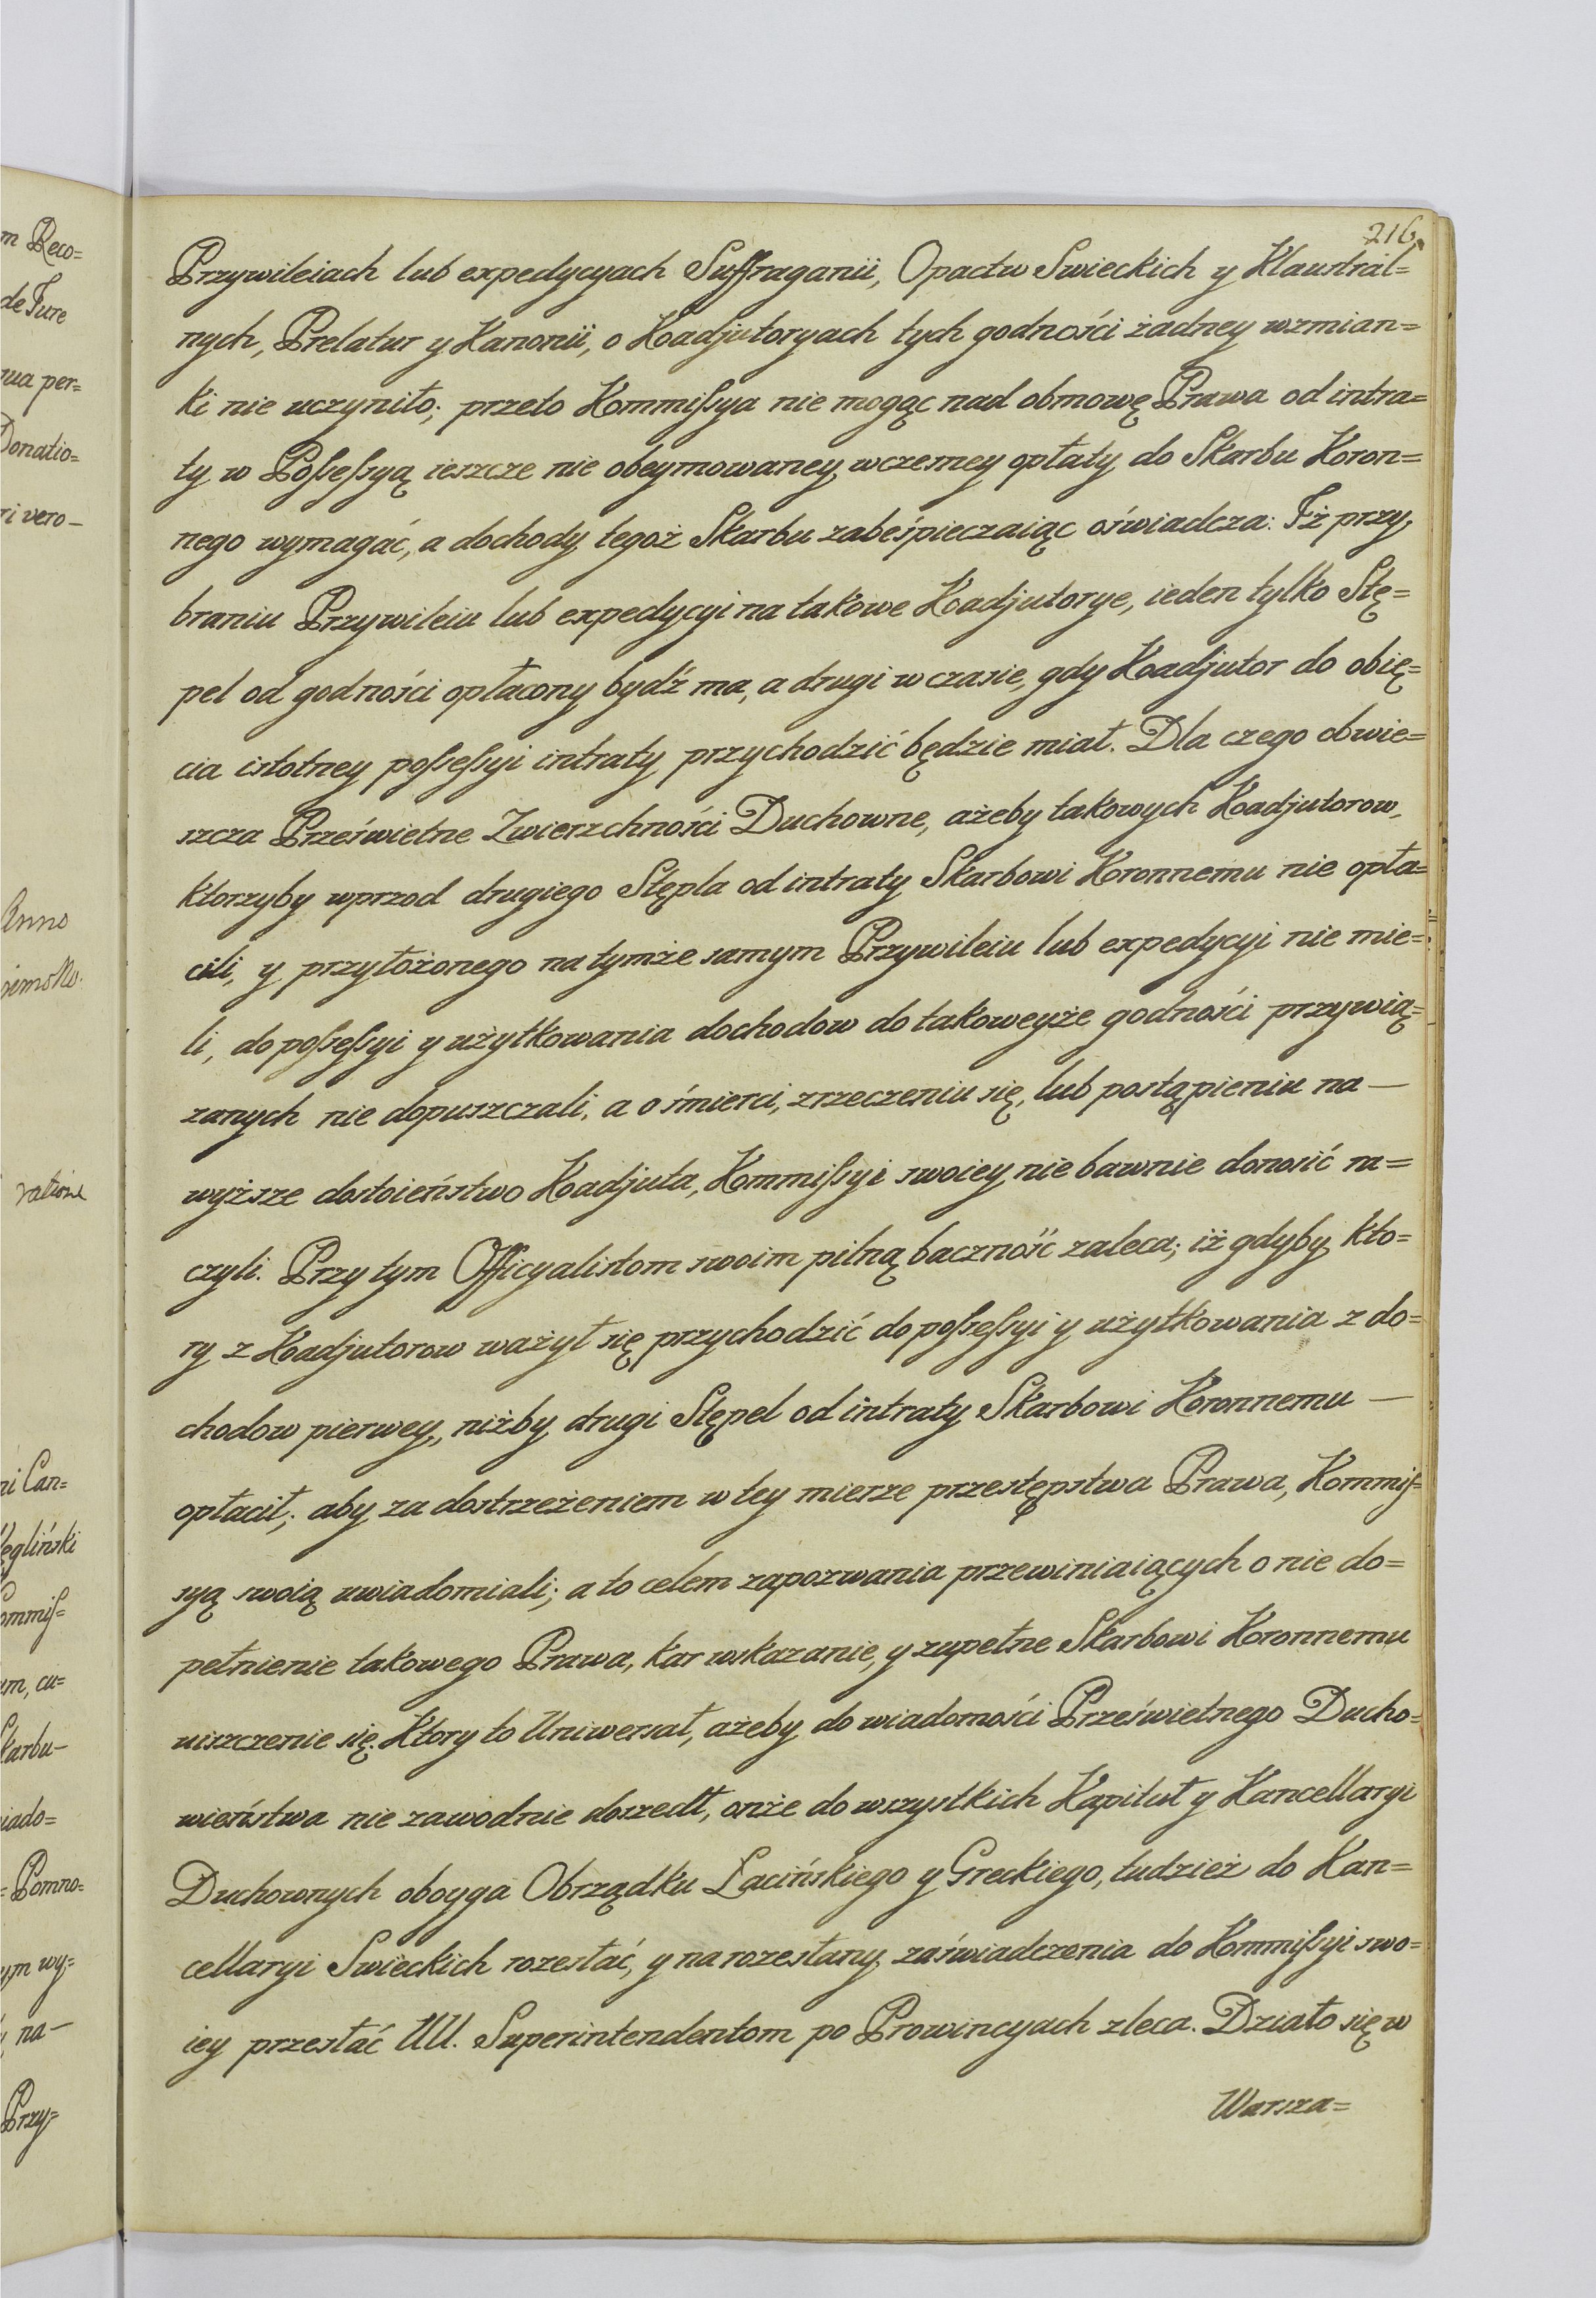 216.
Przywileiach lub expedycyach Suffraganii, Opactw Swieckich y Klaustral=
nych, Prelatur y Kanonii, o Koadjutoryach tych godności żadney wzmian=
ki nie uczyniło; przeto Kommiſsya nie mogąc nad obmowę Prawa od intra=
ty w Poſseſsyą ieszcze nie obeymowaney, wczesney opłaty do Skarbu Koron=
nego wymagać, a dochody tegoż Skarbu zabeśpieczaiąc oświadcza: Iż przy
braniu Przywileiu lub expedycyi na takowe Koadjutorye, ieden tylko Stę=
pel od godności opłacony bydź ma, a drugi w czasie, gdy Koadjutor do obię=
cia istotney poſseſsyi intraty przychodzić będzie miał. Dla czego obwie=
szcza Prześwietne Zwierzchności Duchowne, ażeby takowych Koadjutorow,
ktorzyby wprzod drugiego Stępla od intraty Skarbowi Koronnemu nie opła=
cili, y przyłożonego na tymże samym Przywileiu lub expedycyi nie mie=
li, do poſseſsyi y użytkowania dochodow do takoweyże godności przywią=
zanych nie dopuszczali, a o śmierci, zrzeczeniu się, lub postąpieniu na —
wyższe dostoieństwo Koadjuta, Kommiſsyi swoiey nie bawnie donosić ra=
czyli. Przy tym Officyalistom swoim pilną baczność zaleca; iż gdyby kto=
ry z Koadjutorow ważył się przychodzić do poſseſsyi y użytkowania z do=
chodow pierwey, niżby drugi Stępel od intraty Skarbowi Koronnemu —
opłacił; aby za dostrzeżeniem w tey mierze przestępstwa Prawa, Kommiſ=
syą swoią uwiadomiali; a to celem zapozwania przewiniaiących o nie do=
pełnienie takowego Prawa, kar wskazanie, y zupełne Skarbowi Koronnemu
uiszczenie się. Ktory to Uniwersał, ażeby do wiadomości Prześwietnego Ducho=
wieństwa nie zawodnie doszedł, onże do wszystkich Kapituł y Kancellaryi
Duchownych oboyga Obrządku Łacińskiego y Greckiego, tudzież do Kan=
cellaryi Swieckich rozesłać, y na rozesłany, zaświadczenia do Kommiſsyi swo=
iey przesłać UU. Superintendentom po Prowincyach zleca. Działo się w
Warsza=
m Reco=
de Jure
rua per=
Donatio=
ri vero —
Anno
ratione
ni Can=
ęgliński
ommiſ=
um, cu=
Skarbu —
iado=
= Pomno=
ym wy=
na —
Przy=